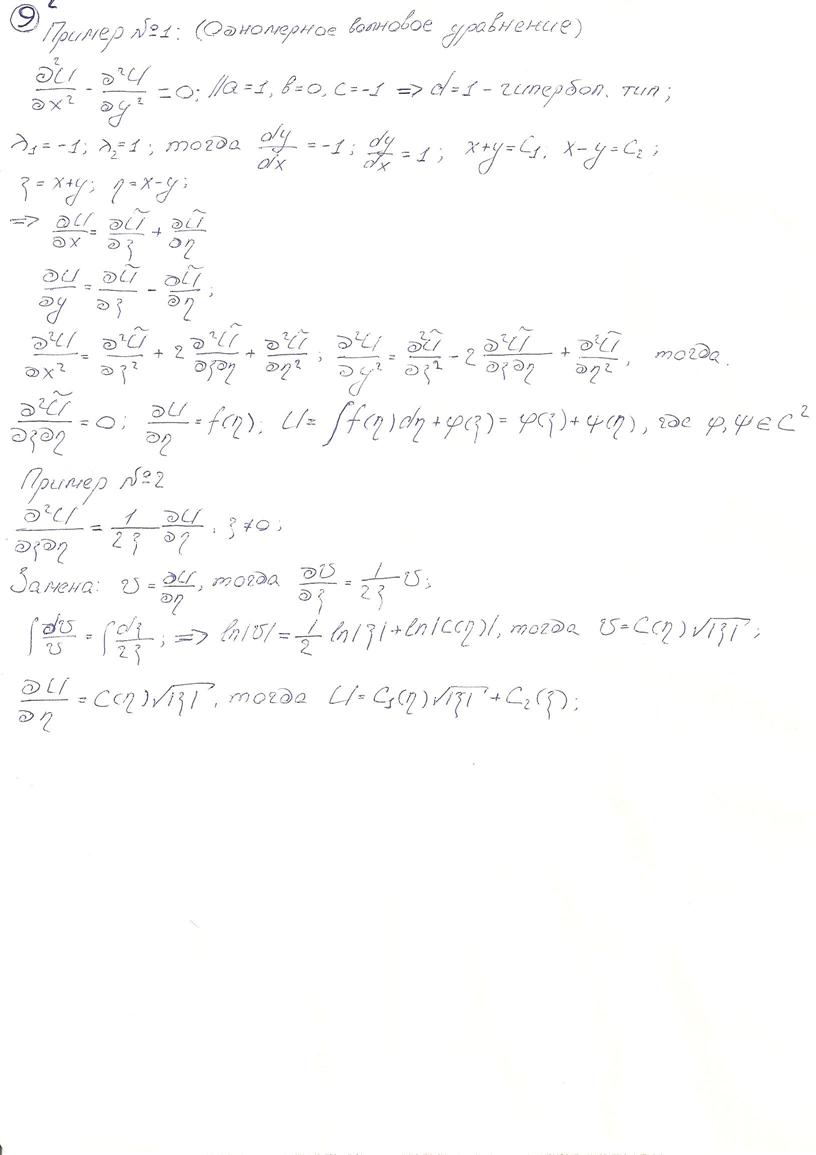 9
Пример №1: (Одномерное волновое уравнение)
∂²U/∂x² - ∂²U/∂y² = 0; //a=1, b=0, c=-1 => d=1 - гипербол. тип;
λ₁=-1; λ₂=1; тогда dy/dx = -1; dy/dx = 1; x+y=C₁; x-y=C₂;
ξ = x+y; η = x-y;
=> ∂U/∂x = ∂Ũ/∂ξ + ∂Ũ/∂η
∂U/∂y = ∂Ũ/∂ξ - ∂Ũ/∂η;
∂²U/∂x² = ∂²Ũ/∂ξ² + 2 ∂²Ũ/∂ξ∂η + ∂²Ũ/∂η²; ∂²U/∂y² = ∂²Ũ/∂ξ² - 2 ∂²Ũ/∂ξ∂η + ∂²Ũ/∂η², тогда.
∂²Ũ/∂ξ∂η = 0; ∂U/∂η = f(η); U = ∫f(η)dη + φ(ξ) = φ(ξ) + ψ(η), где φ,ψ ∈ C²
Пример №2
∂²U/∂ξ∂η = 1/2ξ ∂U/∂η, ξ≠0;
Замена: v = ∂U/∂η, тогда ∂v/∂ξ = 1/2ξ v;
∫dv/v = ∫dξ/2ξ; => ln|v| = 1/2 ln|ξ| + ln|C(η)|, тогда v = C(η)√|ξ|;
∂U/∂η = C(η)√|ξ|, тогда U = C₁(η)√|ξ| + C₂(ξ);